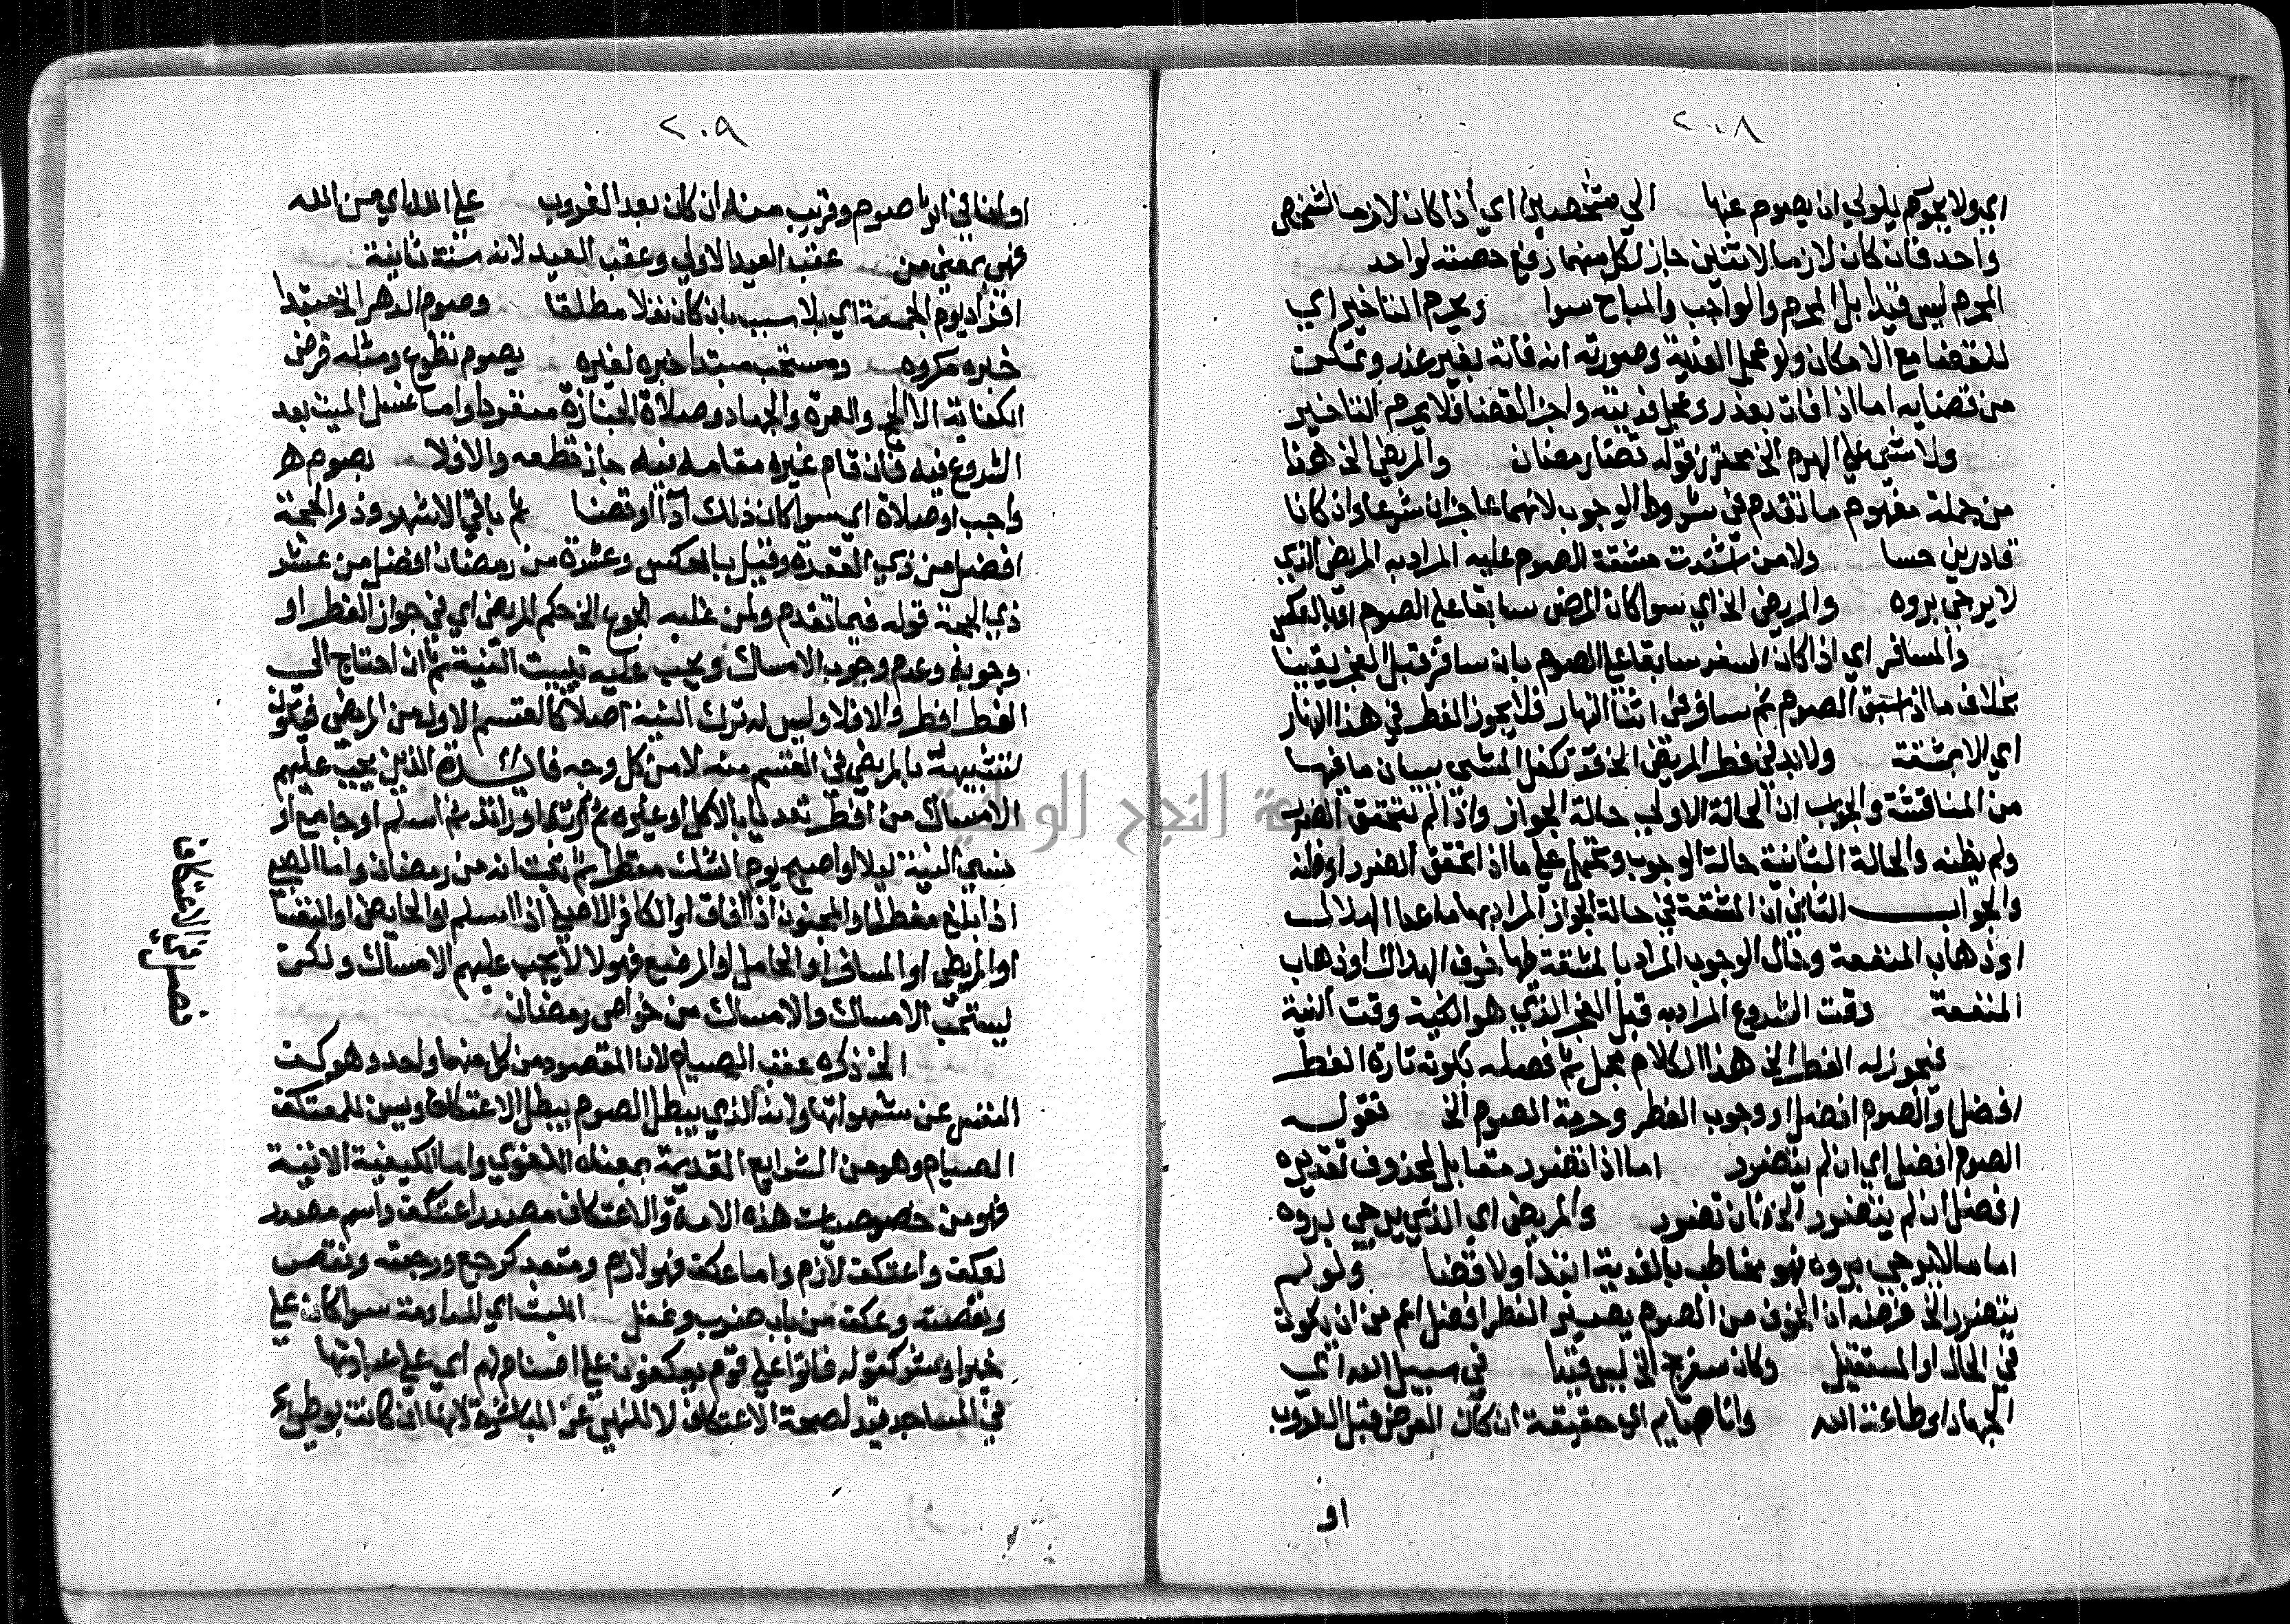 ٢٠٨
اي ولا يجوز للولي ان يصوم عنها الي شخصين اي اذا كان لازما لشخص
واحد فان كان لازما لاثنين جاز لكل منهما رفع حصته لواحد
المحرم ليس قيدا بل المحرم والواجب والمباح سوا ويحرم التاخير اي
للقضا مع الامكان ولو عجل الفدية وصورته انه فاته بغير عذر وتمكن
من قضايه اما اذا فات بعذر وعجل فديته واخر القضا فلا يحرم التاخير
ولا شي علي الهرم الخ محترز قوله قضا رمضان والمريض الخ هذا
من جملة مفهوم ما تقدم في شروط الوجوب لانهما عاجزان شرعا وان كانا
قادرين حسا ولا من اشتدت مشقة الصوم عليه المراد به المريض الذي
لا يرجي بروه والمريض الخ اي سوا كان المرض سابقا علي الصوم او بالعكس
والمسافر اي اذا كان السفر سابقا علي الصوم بان سافر قبل الفجر يقينا
بخلاف ما اذا سبق الصوم ثم سافر في اثنا النهار فلا يجوز الفطر في هذا النهار
اي الا بمشقة ولا بد في فطر المريض الخ قد تكفل المحشي ببيان ما فيها
من المناقشة والجواب ان الحالة الاولي حالة الجواز واذا لم يتحقق الضرر
ولم يظنه والحالة الثانية حالة الوجوب وتحمل علي ما اذا تحقق الضرر او ظنه
والجواب الثاني ان المشقة في حالة الجواز المراد بها ما عدا الهلاك
او ذهاب المنفعة وحال الوجوب المراد بالمشقة فيها خوف الهلاك او ذهاب
المنفعة وقت الشروع المراد به قبل الفجر الذي هو وقت النية
فيجوز له الفطر الخ هذا الكلام مجمل ثم فصله بكونه تارة الفطر
افضل والصوم افضل او وجوب الفطر وحرمة الصوم الخ نقول
الصوم افضل اي ان لم يتضرر اما اذا تضرر مقابل لمحذوف تقديره
افضل ان لم يتضرر الخ فان تضرر والمريض اي الذي يرجي بروه
اما ما لا يرجي بروه فهو مخاطب بالفدية ابتدا ولا قضا ولو لم
يتضرر الخ غرضه ان الخوف من الصوم يصير الفطر افضل اعم من ان يكون
في الحال او المستقبل وكان سفر حج الخ ليس قيدا في سبيل الله اي
الجهاد او طاعة الله وانا صايم اي حقيقة ان كان العرض قبل الغروب
او
٢٠٩
او فيه وقريب منه ان كان بعد الغروب
فهي بمعني من عقب العيد الاولي وعقب العيد لانه سنة ثانية
افراد يوم الجمعة اي بلا سبب بان كان نفلا مطلقا وصوم الدهر الخ مبتدا
خبره مكروه ومستحب مبتدا خبره لغيره بصوم تطوع ومثله فرض
الكفاية الا الحج والعمرة والجهاد وصلاة الجنازة منفردا واما غسل الميت بعد
الشروع فيه فان قام غيره مقامه فيه جاز قطعه والا فلا بصوم هر
واجب او صلاة اي سوا كان ذلك اداا وقضا ثم باقي الاشهر وذو الحجة
افضل من ذي القعدة وقيل بالعكس وعشرة من رمضان افضل من عشر
ذي الحجة قوله فيما تقدم ولمن غلبه الجوع الخ حكم المريض اي في جواز الفطر او
وجوبه وعدم وجوب الامساك ويجب عليه تبييت النية ثم ان احتاج الي
الفطر افطر والا فلا وليس له ترك النية اصلا كالقسم الاول من المريض فيكون
تشبيهه بالمريض في القسم منه لا من كل وجه فائدة الذين يجب عليهم
الامساك من افطر تعديا بالاكل او غيره ثم اسلم او جامع او
نسي النية ليلا او اصبح يوم الشك مفطرا ثم ثبت انه من رمضان واما الصبي
اذا بلغ مفطرا والمجنون اذا افاق او الكافر الاصلي اذا اسلم او الحايض او النفسا
او المريض او المسافر او الحامل او المرضع فهولا لا يجب عليهم الامساك ولكن
يستحب الامساك والامساك من خواص رمضان
الخ ذكره عقب الصيام لان المقصود من كل منهما واحد وهو كف
النفس عن شهواتها ولان الذي يبطل الصوم يبطل الاعتكاف ويسن للمعتكف
الصيام وهو من الشرايع القديمة بمعناه اللغوي واما الكيفية الاتية
فهو من خصوصيات هذه الامة والاعتكاف مصدر اعتكف واسم مصدر
لعكف واعتكف لازم واما عكف فهو لازم ومتعد كرجع ورجعته ونقص
ونقصته وعكف من باب ضرب وغفل اللبث اي المداومة سوا كان علي
خير او شر كقوله فاتوا علي قوم يعكفون علي اصنام لهم اي علي عبادتها
في المساجد قيد لصحة الاعتكاف لا للنهي عن المباشرة لانها ان كانت بوطي
فصل في الاعتكاف
جامعة النجاح الوطنية